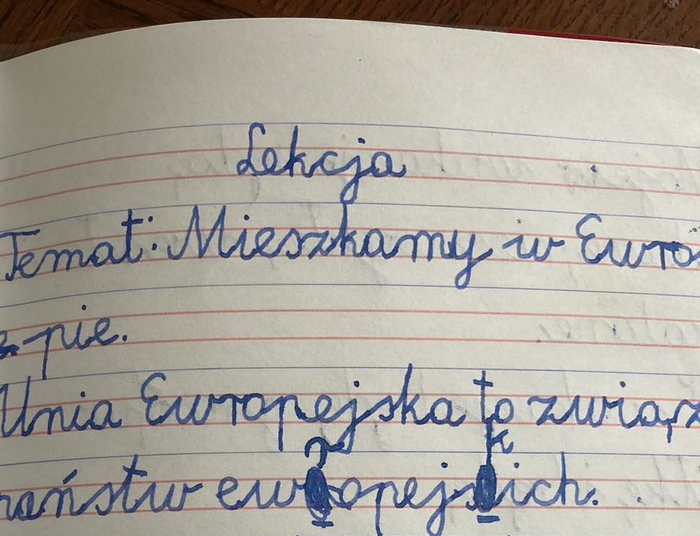 Lekcja
Temat: Mieszkamy w Euro
pie.
Unia Europejska to związ
państw europejskich.